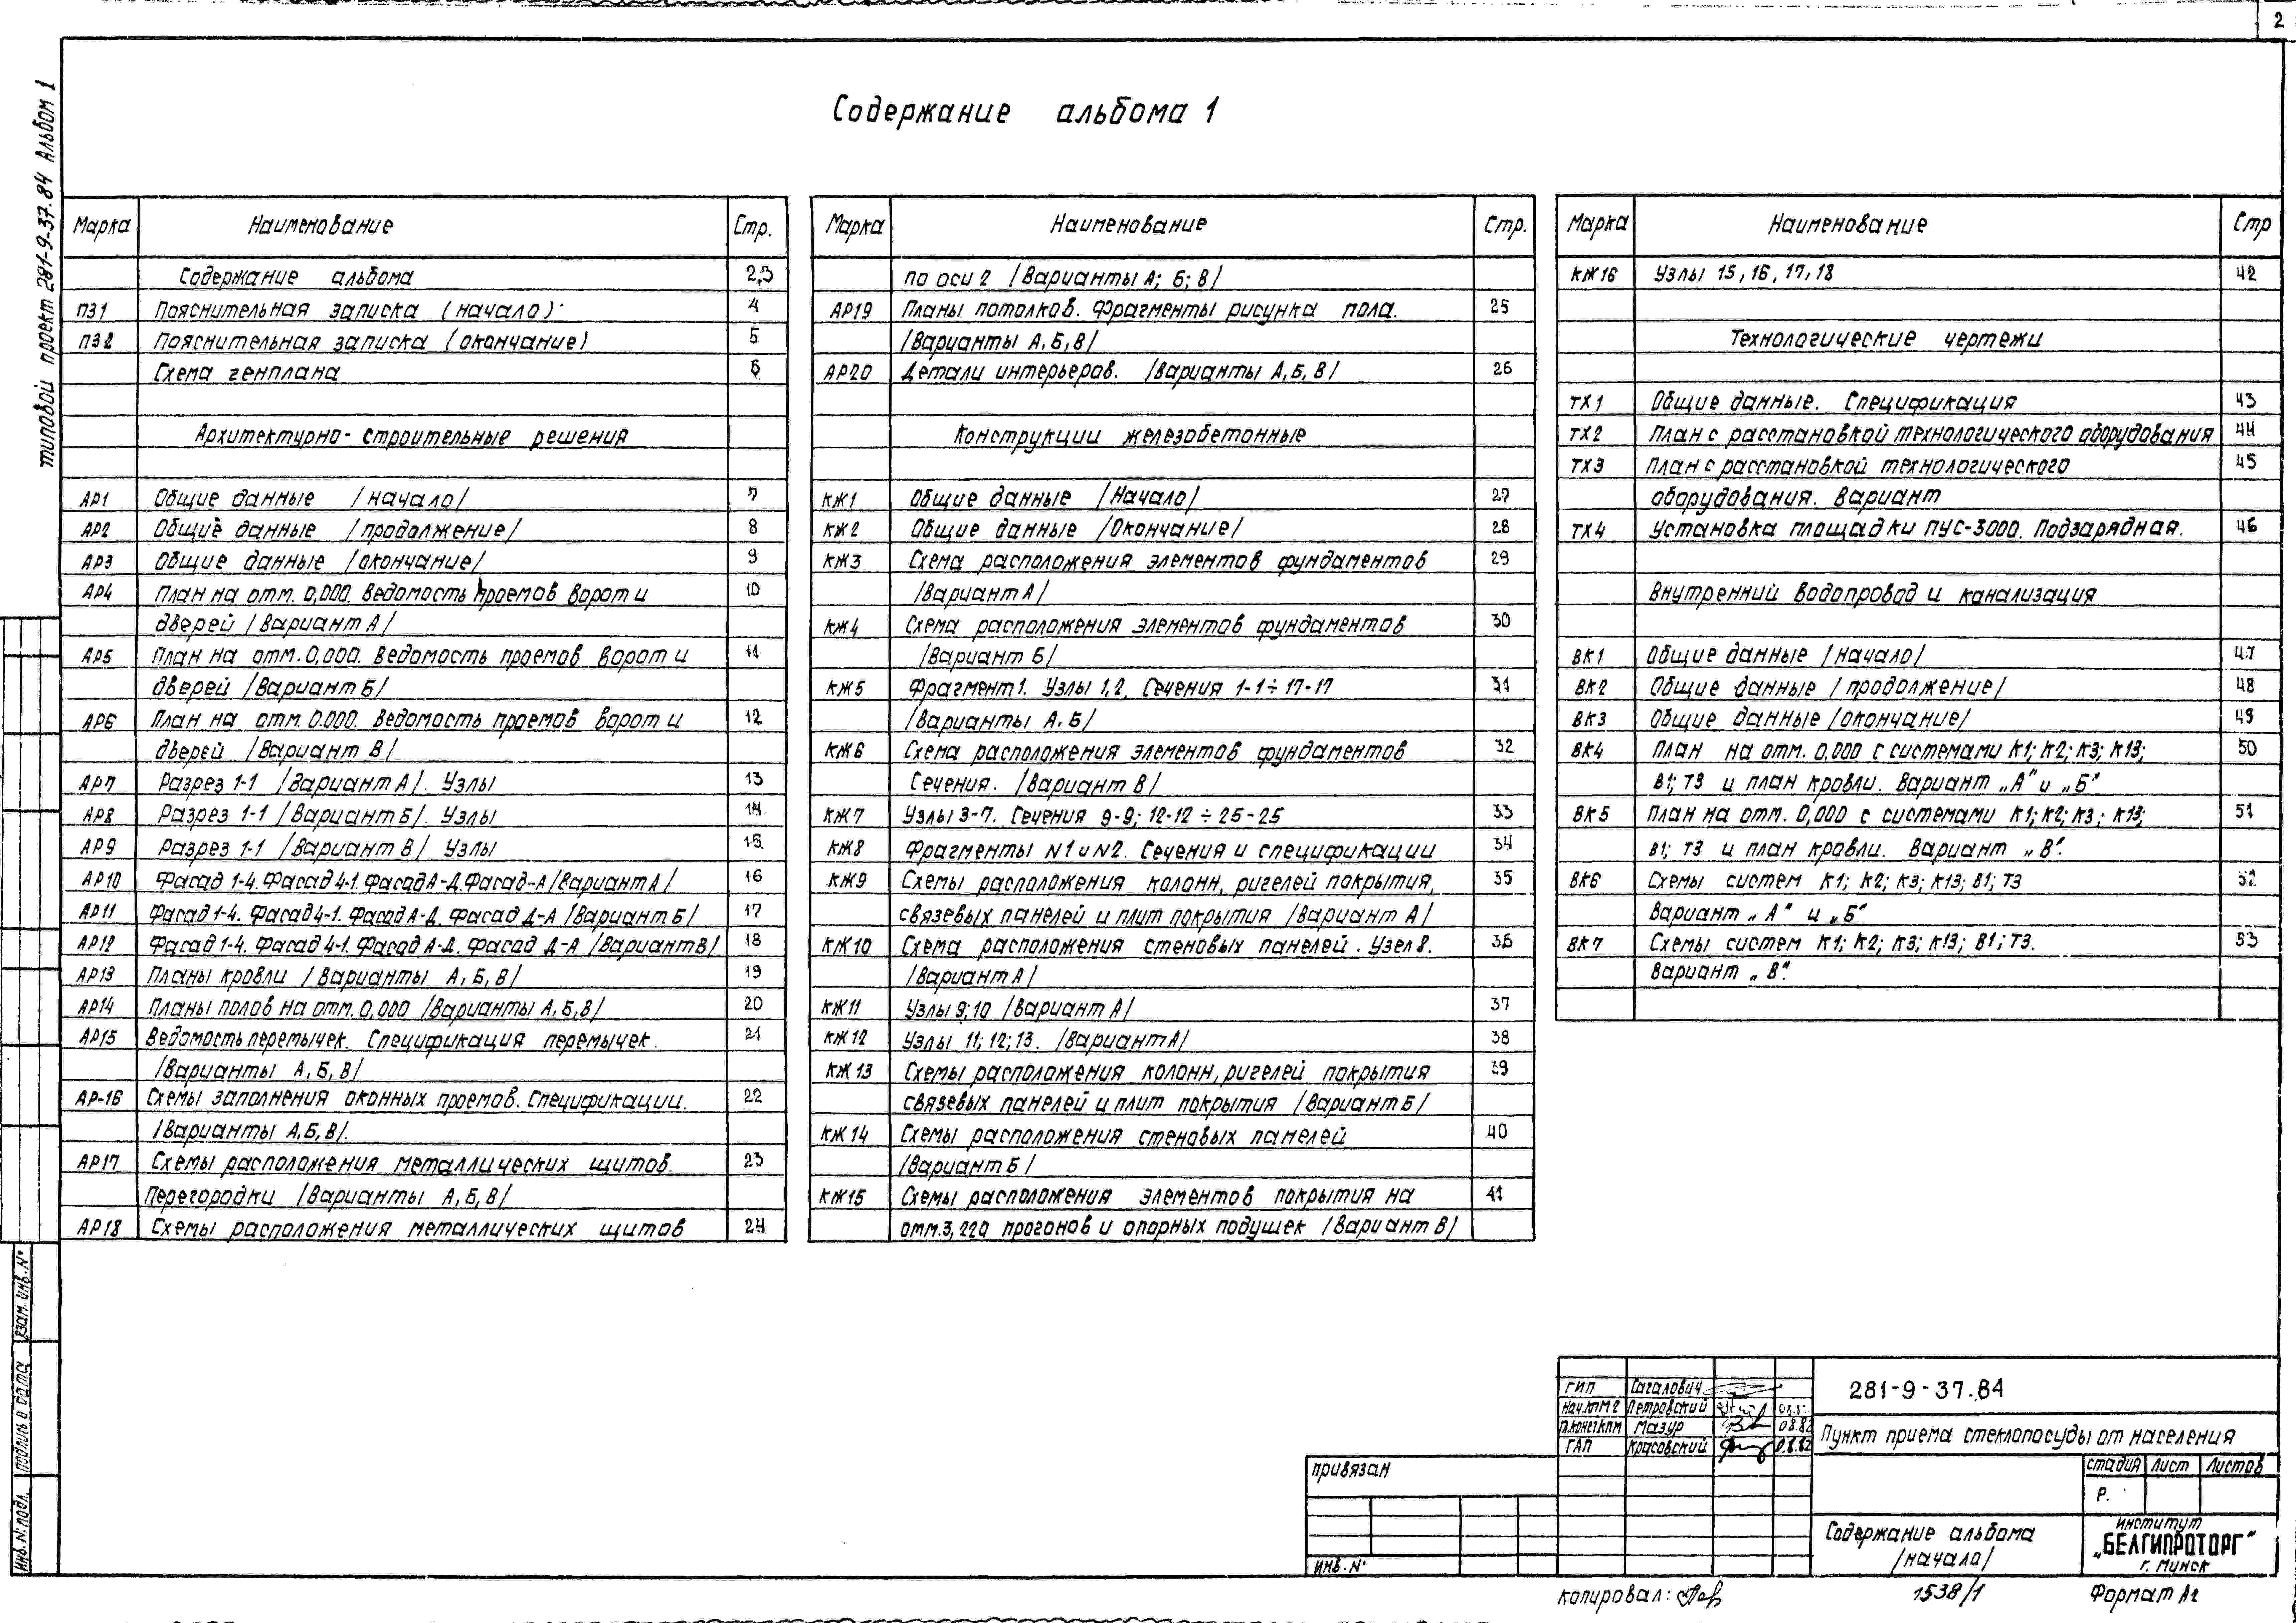 2
типовой проект 281-9-37.84 Альбом 1
Содержание альбома 1
Марка Наименование Стр.
Содержание альбома 2,3
ПЗ1 Пояснительная записка (начало) 4
ПЗ2 Пояснительная записка (окончание) 5
Схема генплана 6
Архитектурно-строительные решения
АР1 Общие данные /начало/ 7
АР2 Общие данные /продолжение/ 8
АР3 Общие данные /окончание/ 9
АР4 План на отм. 0,000. Ведомость проемов ворот и 10
дверей /Вариант А/
АР5 План на отм. 0,000. Ведомость проемов ворот и 11
дверей /Вариант Б/
АР6 План на отм. 0.000. Ведомость проемов ворот и 12
дверей /Вариант В/
АР7 Разрез 1-1 /Вариант А/. Узлы 13
АР8 Разрез 1-1 /Вариант Б/. Узлы 14
АР9 Разрез 1-1 /Вариант В/ Узлы 15
АР10 Фасад 1-4. Фасад 4-1. Фасад А-Д. Фасад-А /Вариант А/ 16
АР11 Фасад 1-4. Фасад 4-1. Фасад А-Д. Фасад Д-А /Вариант Б/ 17
АР12 Фасад 1-4. Фасад 4-1. Фасад А-Д. Фасад Д-А /Вариант В/ 18
АР13 Планы кровли /Варианты А, Б, В/ 19
АР14 Планы полов на отм. 0,000 /Варианты А, Б, В/ 20
АР15 Ведомость перемычек. Спецификация перемычек. 21
/Варианты А, Б, В/
АР-16 Схемы заполнения оконных проемов. Спецификации. 22
/Варианты А, Б, В/.
АР17 Схемы расположения металлических щитов. 23
Перегородки /Варианты А, Б, В/
АР18 Схемы расположения металлических щитов 24
Марка Наименование Стр.
по оси 2 /Варианты А; Б; В/
АР19 Планы потолков. Фрагменты рисунка пола. 25
/Варианты А, Б, В/
АР20 Детали интерьеров. /Варианты А, Б, В/ 26
Конструкции железобетонные
КЖ1 Общие данные /Начало/ 27
КЖ2 Общие данные /Окончание/ 28
КЖ3 Схема расположения элементов фундаментов 29
/Вариант А/
КЖ4 Схема расположения элементов фундаментов 30
/Вариант Б/
КЖ5 Фрагмент 1. Узлы 1, 2. Сечения 1-1÷17-17 31
/Варианты А, Б/
КЖ6 Схема расположения элементов фундаментов 32
Сечения. /Вариант В/
КЖ7 Узлы 3-7. Сечения 9-9; 12-12÷25-25 33
КЖ8 Фрагменты N1 и N2. Сечения и спецификации 34
КЖ9 Схемы расположения колонн, ригелей покрытия, 35
связевых панелей и плит покрытия /Вариант А/
КЖ10 Схема расположения стеновых панелей. Узел 8. 36
/Вариант А/
КЖ11 Узлы 9; 10 /Вариант А/ 37
КЖ12 Узлы 11; 12; 13. /Вариант А/ 38
КЖ13 Схемы расположения колонн, ригелей покрытия 39
связевых панелей и плит покрытия /Вариант Б/
КЖ14 Схемы расположения стеновых панелей 40
/Вариант Б/
КЖ15 Схемы расположения элементов покрытия на 41
отм. 3,220 прогонов и опорных подушек /Вариант В/
Марка Наименование Стр
КЖ16 Узлы 15, 16, 17, 18 42
Технологические чертежи
ТХ1 Общие данные. Спецификация 43
ТХ2 План с расстановкой технологического оборудования 44
ТХ3 План с расстановкой технологического 45
оборудования. Вариант
ТХ4 Установка площадки ПУС-3000. Подзарядная. 46
Внутренний водопровод и канализация
ВК1 Общие данные /начало/ 47
ВК2 Общие данные /продолжение/ 48
ВК3 Общие данные /окончание/ 49
ВК4 План на отм. 0,000 с системами К1; К2; К3; К13; 50
В1; Т3 и план кровли. Вариант „А" и „Б"
ВК5 План на отм. 0,000 с системами К1; К2; К3; К13; 51
В1; Т3 и план кровли. Вариант „В".
ВК6 Схемы систем К1; К2; К3; К13; В1; Т3 52
Вариант „А" и „Б"
ВК7 Схемы систем К1; К2; К3; К13; В1; Т3. 53
Вариант „В".
взам. инв. N°
подпись и дата
Инв. N: подл.
ГИП Сагалович
Нач. КПМ2 Петровский
Мазур 08.82
ГАП Красовский
281-9-37.84
Пункт приема стеклопосуды от населения
привязан
инв. N°
стадия лист Листов
Р.
Содержание альбома
/начало/
институт
„БЕЛГИПРОТОРГ"
г. Минск
копировал:
1538/1
Формат А2